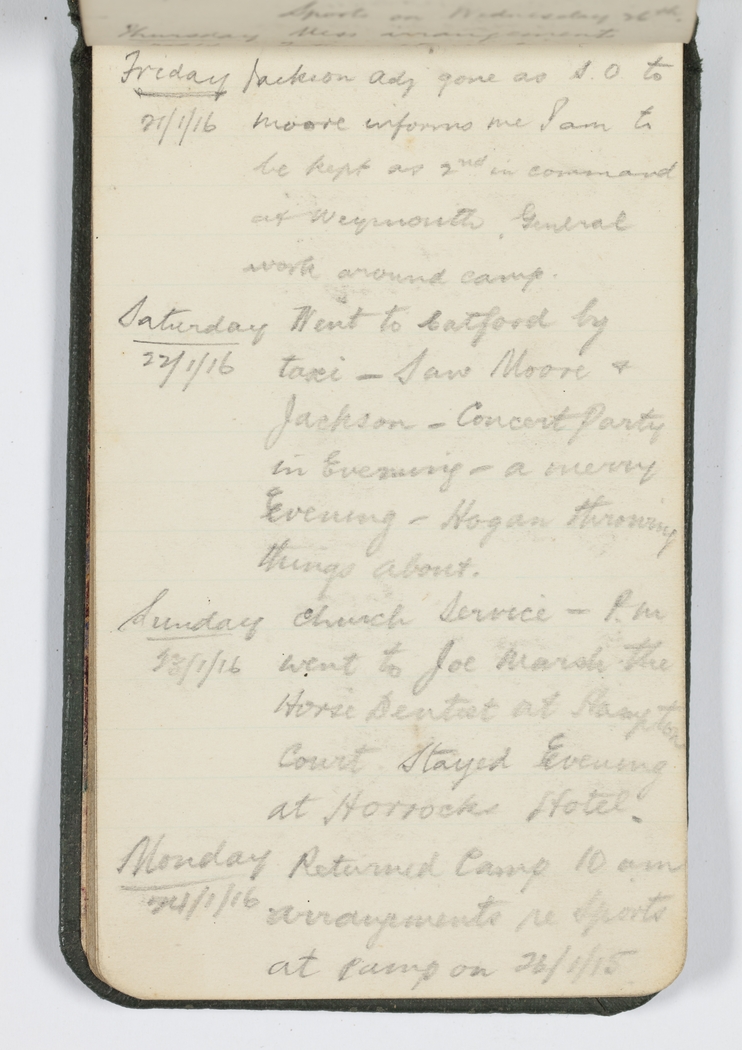 Sports on Wednesday 26th.
Thursday Mess arrangement
Friday Jackson adj gone as S.O to
21/1/16 Moore informs me I am to
be kept as 2nd in command
at Weymouth. General
work around camp.
Saturday Went to Catford by
22/1/16 taxi – Saw Moore &
Jackson – Concert Party
in Evening – a merry
Evening – Hogan throwing
things about.
Sunday Church Service – P.m
23/1/16 went to Joe Marsh the
Horse Dentist at Hampton
Court. Stayed Evening
at Horrocks Hotel.
Monday Returned Camp 10 am
24/1/16 arrangements re Sports
at Camp on 26/1/15